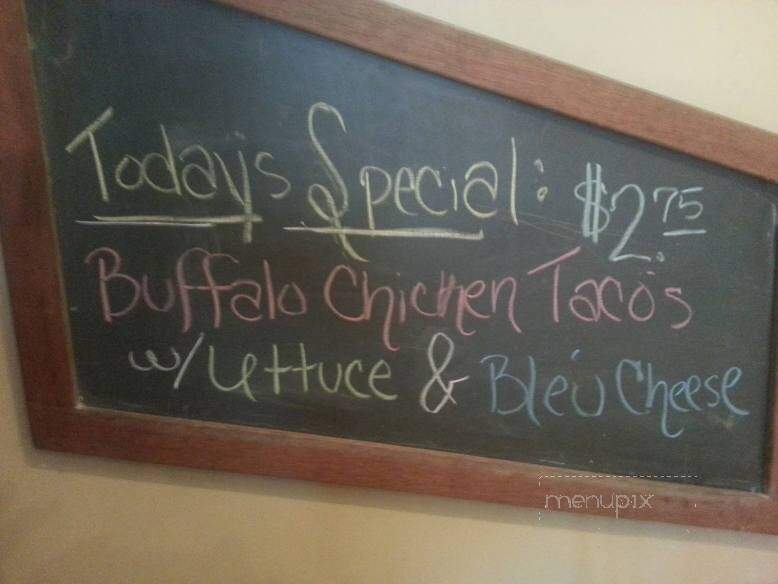 Today's Special: $2.75
Buffalo Chicken Taco's
w/ Lettuce & Bleu Cheese
menupix